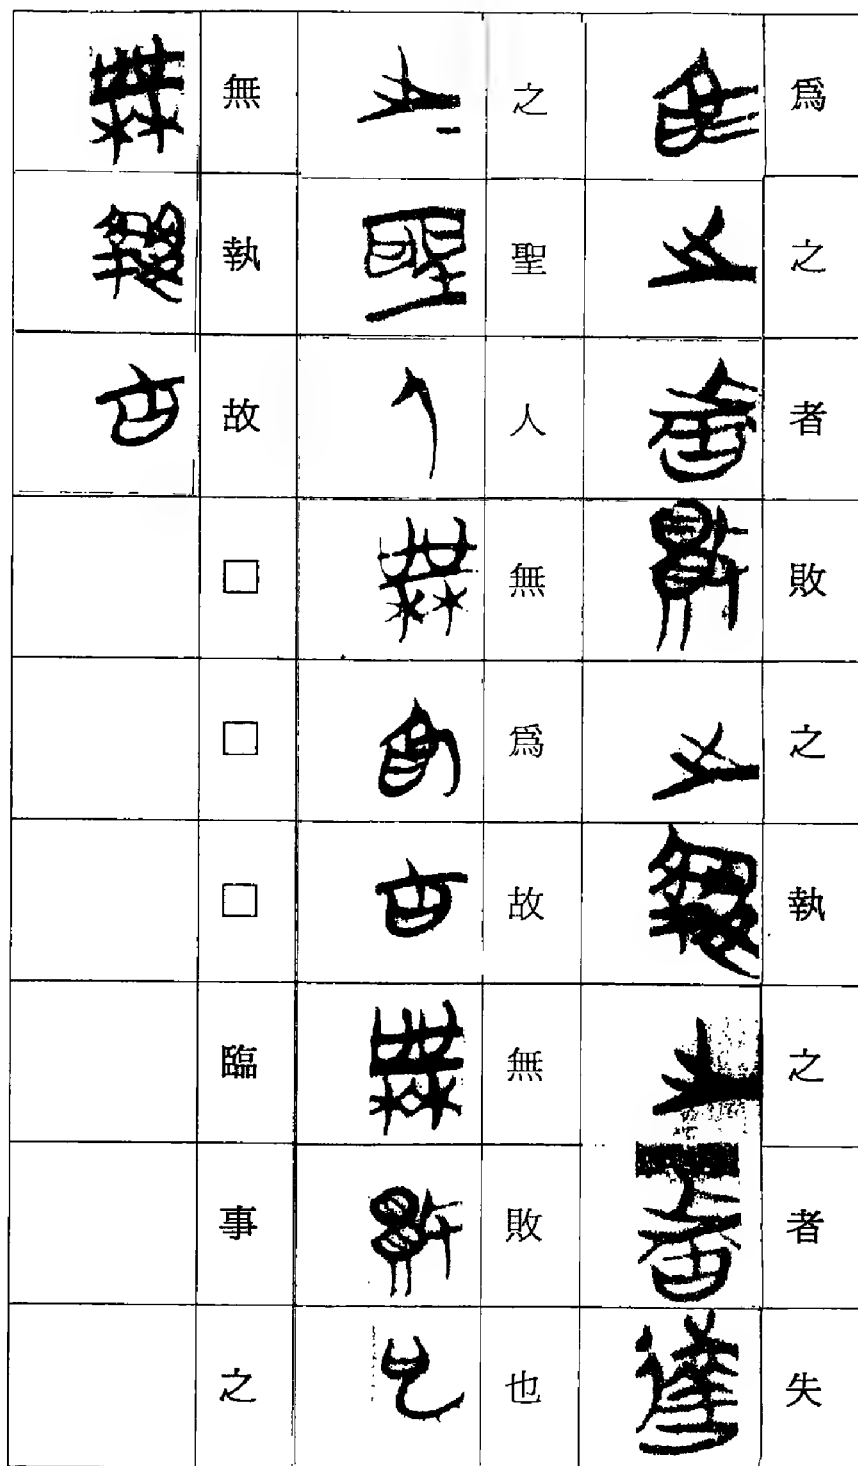 爲之者敗之執之者失
之聖人無爲故無敗也
無執故□□□臨事之